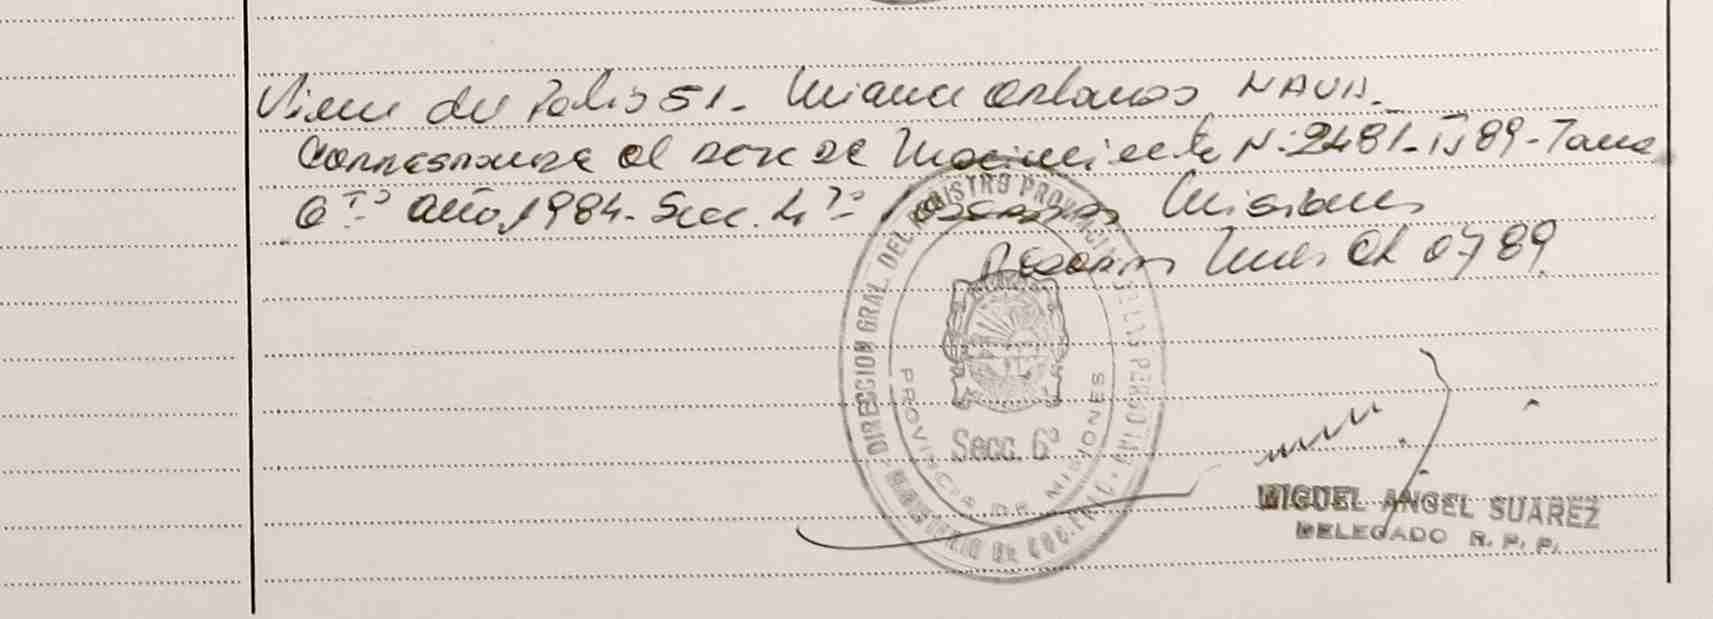 Viene del Folio 51- Orlando NAVA.-
Corresponde al Acta de Nacimiento N: 2481- 89- Tomo
6 Año 1984- Secc. Posadas Misiones
Posadas 89
DIRECCION GRAL. DEL REGISTRO PROVINCIAL DE LAS PERSONAS
MINISTERIO DE
PROVINCIA DE MISIONES
Secc. 6ª
MIGUEL ANGEL SUAREZ
DELEGADO R. P. P.